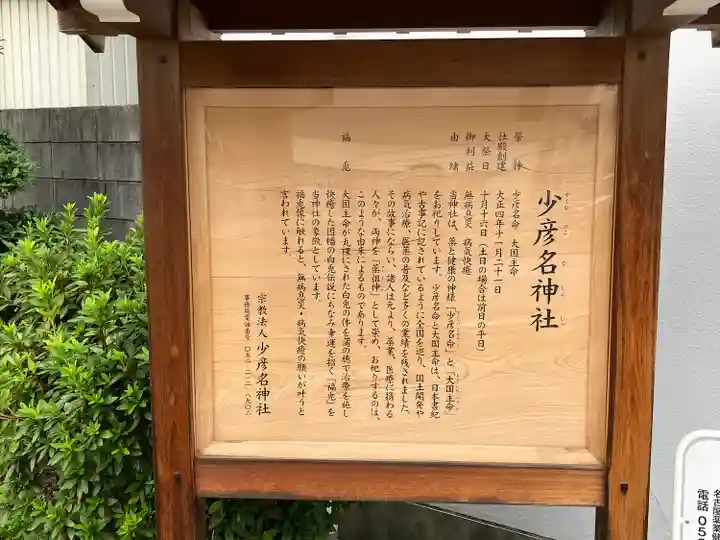 少彦名神社
すくな ひこ な じん じゃ
祭神 少彦名命 大国主命
社殿創建 大正四年十一月二十一日
大祭日 十月十六日(土日の場合は前日の平日)
御利益 無病息災 病気快癒
由緒 当神社は、薬と健康の神様「少彦名命」と「大国主命」
をお祀りしています。少彦名命と大国主命は、日本書紀
や古事記に記されているように全国を巡り、国土開発や
病気治療、医薬の普及など多くの業績を残されました。
その故事にならい、諸人は元より、薬業、医療に携わる
人々が、両神を「薬祖神」として崇め、お祀りするのは、
このような由来によるものであります。
福兎 大国主命が丸裸にされた白兎の体を蒲の穂で治療を施し
快癒した因幡の白兎伝説にちなみ幸運を招く「福兎」を
当神社の象徴としています。
福兎像に触れると、無病息災・病気快癒の願いが叶うと
言われています。
宗教法人 少彦名神社
名古屋薬業健
電話 05